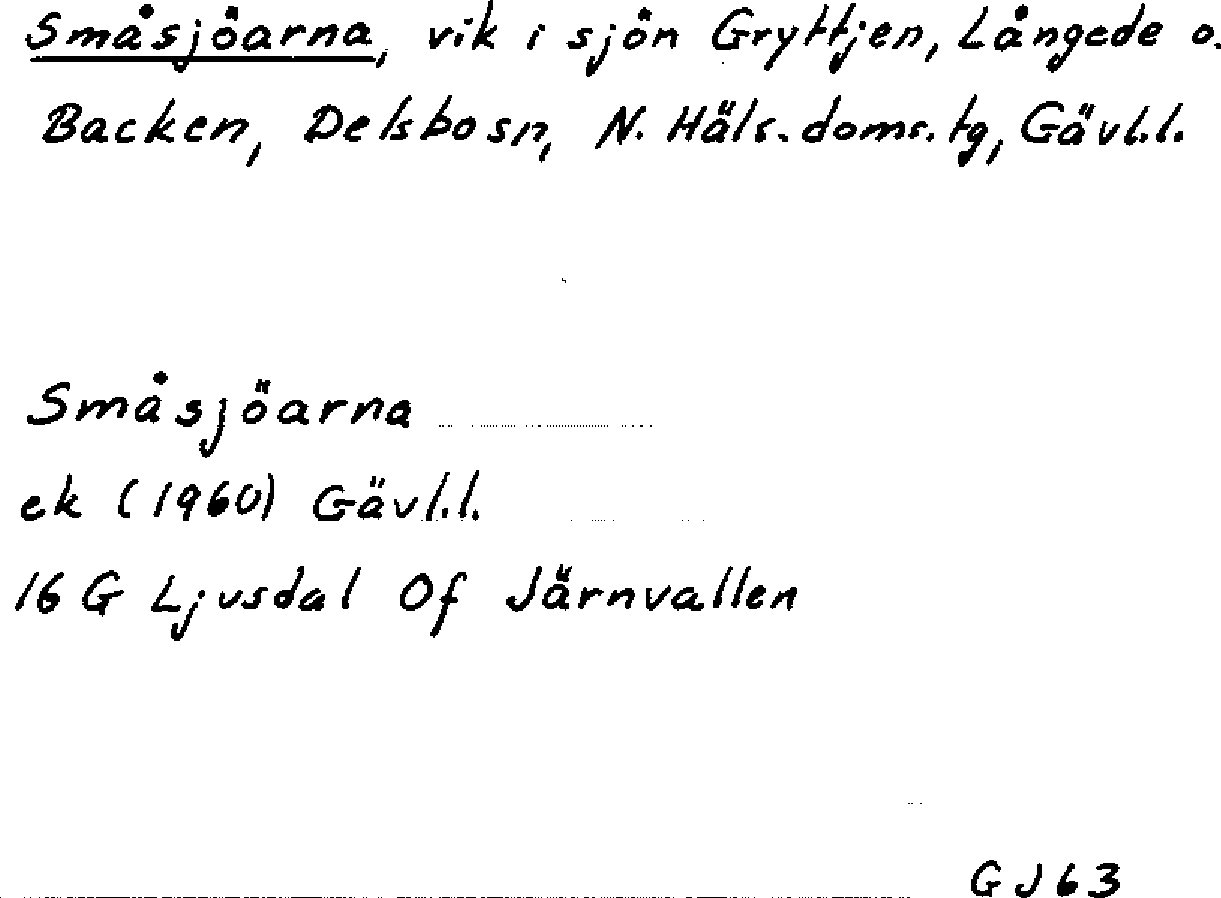 Småsjöarna, vik i sjön Gryttjen, Långede o.
Backen, Delsbo sn, N. Häls. doms. tg, Gävl.l.
Småsjöarna
ek (1960) Gävl.l.
16 G Ljusdal 0f Järnvallen
GJ63